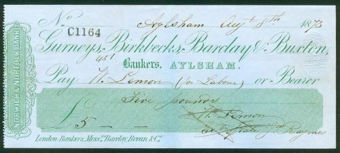 No. C1164 Aylsham Augt 8th 1873
Gurneys, Birkbecks, Barclay & Buxton,
Bankers. AYLSHAM.
Pay W. Lemon (for Labour) or Bearer
Five pounds
£ 5
London Bankers, Messrs. Barclay, Bevan & Co.